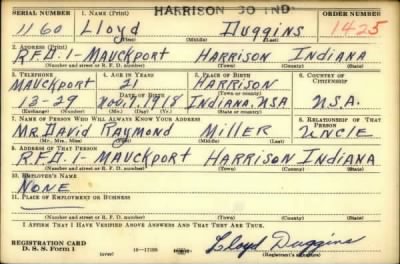 HARRISON 30 IND
SERIAL NUMBER 1. NAME (Print) ORDER NUMBER
1160 Lloyd Duggins 1425
(First) (Middle) (Last)
2. ADDRESS (Print)
R.F.D. 1- MAUCKPORT HARRISON INDIANA
(Number and street or R. F. D. number) (Town) (County) (State)
3. TELEPHONE 4. AGE IN YEARS 5. PLACE OF BIRTH 6. COUNTRY OF CITIZENSHIP
MAUCKPORT 21 HARRISON
DATE OF BIRTH
3-29 Nov. 9, 1918 INDIANA, USA U.S.A.
(Exchange) (Number) (Mo.) (Day) (Yr.) (State or country)
7. NAME OF PERSON WHO WILL ALWAYS KNOW YOUR ADDRESS 8. RELATIONSHIP OF THAT PERSON
MR. DAVID RAYMOND MILLER UNCLE
(Mr., Mrs., Miss) (First) (Middle) (Last)
9. ADDRESS OF THAT PERSON
R.F.D. 1- MAUCKPORT HARRISON INDIANA
(Number and street or R. F. D. number) (Town) (County) (State)
10. EMPLOYER'S NAME
NONE
11. PLACE OF EMPLOYMENT OR BUSINESS
(Number and street or R. F. D. number) (Town) (County) (State)
I AFFIRM THAT I HAVE VERIFIED ABOVE ANSWERS AND THAT THEY ARE TRUE.
REGISTRATION CARD
D. S. S. Form 1 Lloyd Duggins
(Registrant's signature)